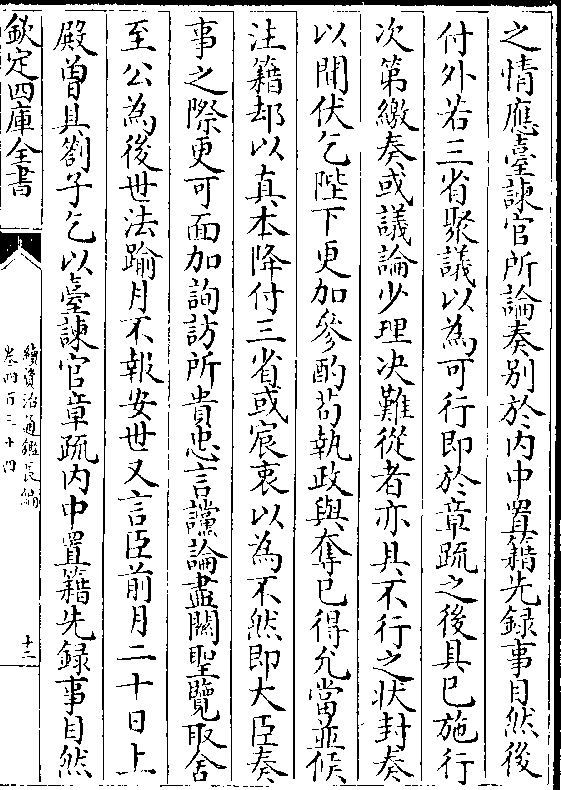 之情應臺諫官所論奏别於内中置籍先録事目然後
付外若三省聚議以為可行即於章疏之後具已施行
次第繳奏或議論少理决難從者亦具不行之狀封奏
以聞伏乞陛下更加參酌苟執政與奪已得允當並候
注籍却以真本降付三省或宸衷以為不然即大臣奏
事之際更可面加詢訪所貴忠言讜論盡關聖覽取舍
至公為後世法踰月不報安世又言臣前月二十日上
殿曾具劄子乞以臺諫官章疏内中置籍先録事目然
欽定四庫全書
續資治通鑑長編
卷四百三十四
十二